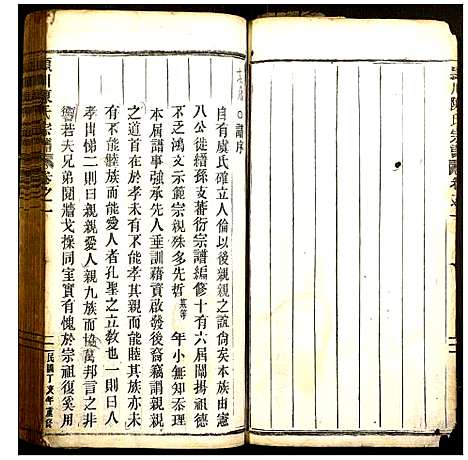 譜序
自有虞氏確立人倫以後親親之誼尙矣本族由憲
八公徙縉孫支蕃衍宗譜編修十有六屆闡揚祖德
不乏鴻文示範宗親殊多先哲蕙等年小無知忝理
本屆譜事強承先人垂訓藉資啟發後裔竊謂親親
首在於孝未有不能孝而能孝其親而能其族亦未
有不能睦族而能愛人者孔聖之立敎也一則曰人
孝出悌二則曰親親愛人親九族而協萬邦言之非
若夫兄弟鬩牆戈操同室實有愧於宗祖復奚用
潁川陳氏宗譜 卷之一
民國丁亥年重修
潁川陳氏宗譜 卷之一